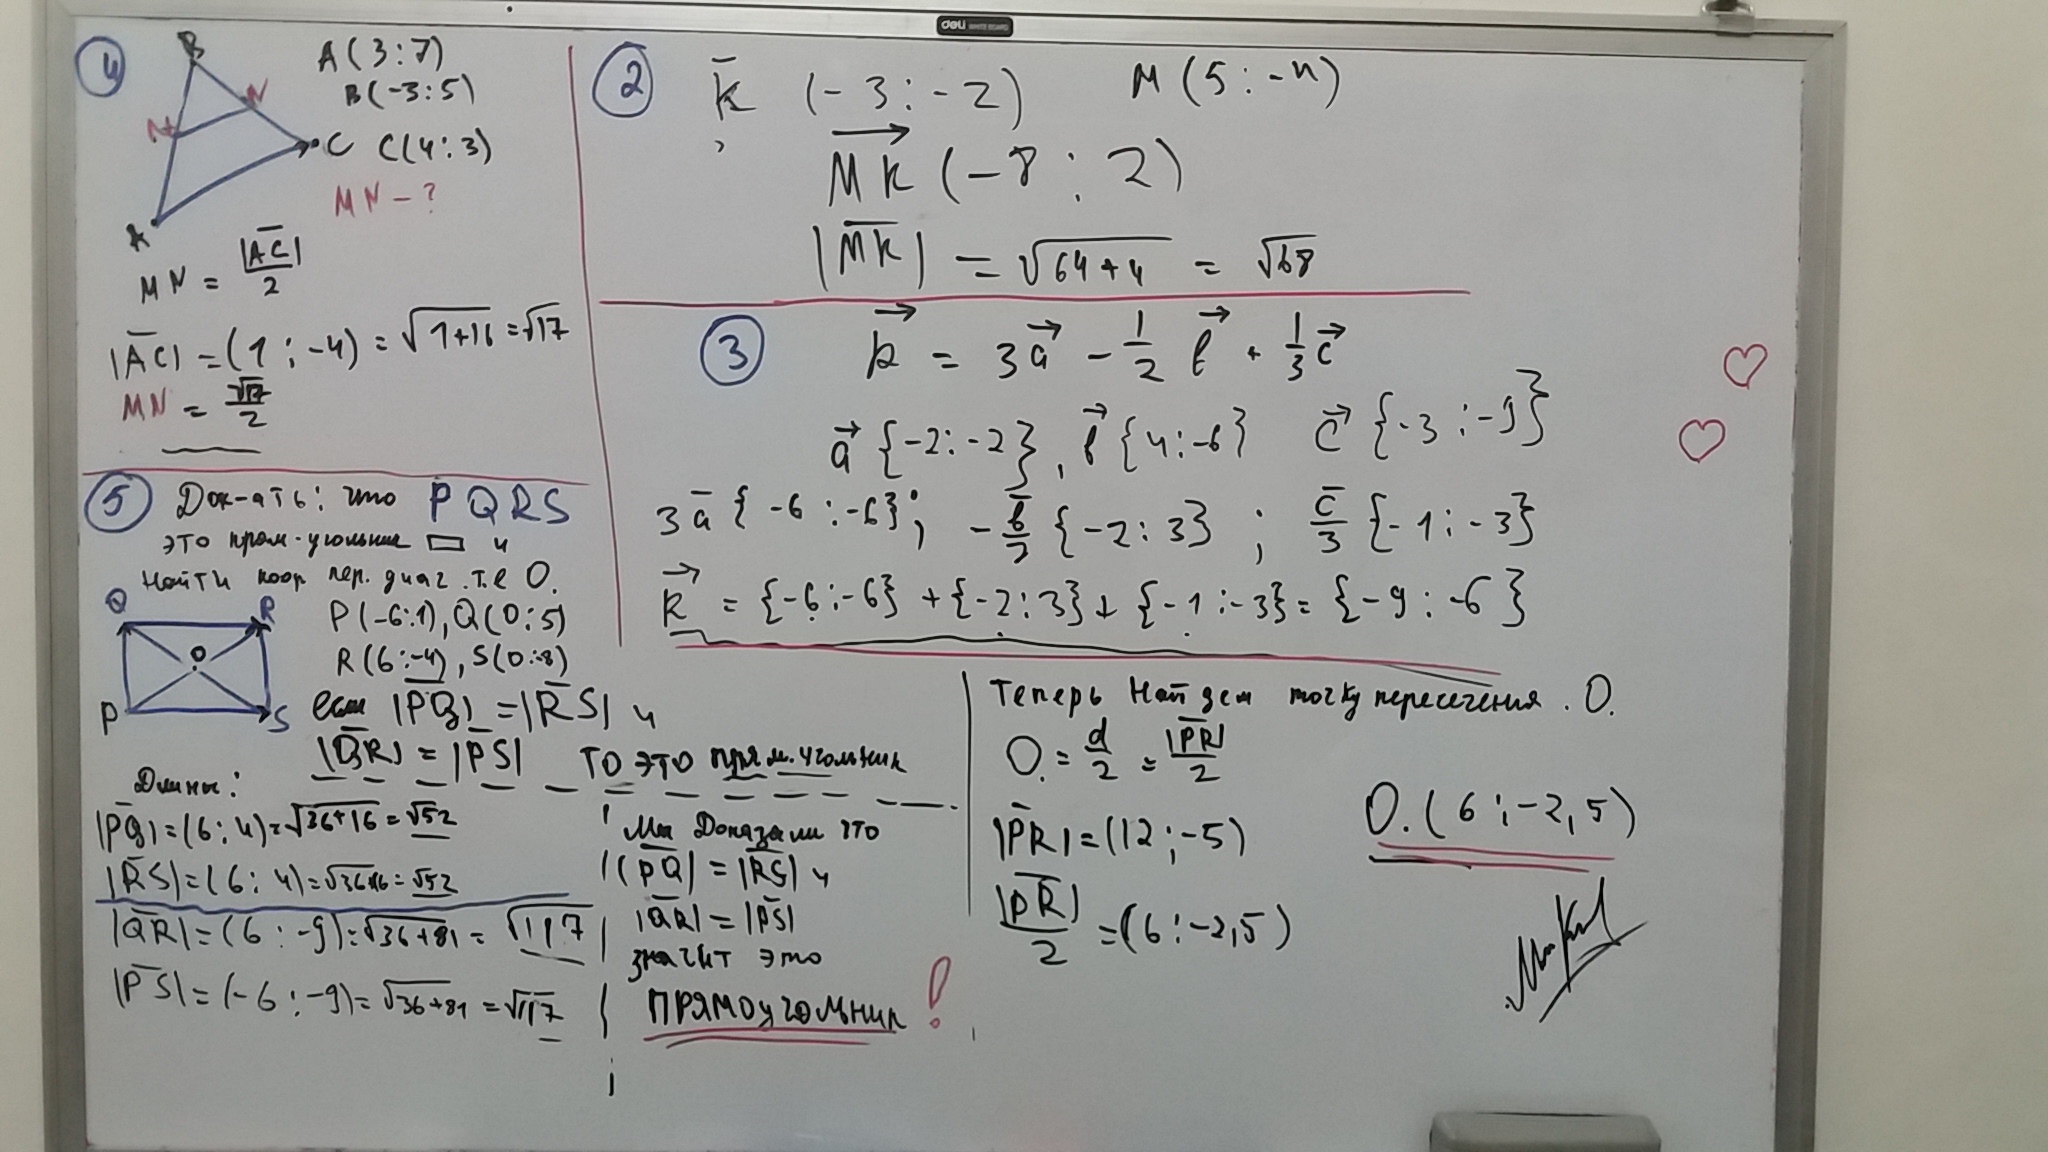 deli WHITE BOARD
4
B
N
M
C
A
A(3:7)
B(-3:5)
C(4:3)
MN-?
MN = |AC|/2
|AC| = (1;-4) = √1+16 = √17
MN = √17/2
2
k (-3:-2) M(5:-4)
MK (-8:2)
|MK| = √64+4 = √68
3
k = 3a - 1/2 b + 1/3 c
a {-2:-2}, b {4:-6} c {-3:-9}
3a {-6:-6}; -b/2 {-2:3}; c/3 {-1:-3}
k = {-6:-6} + {-2:3} + {-1:-3} = {-9:-6}
5 Док-ать: что PQRS
это прям-угольник и
найти коор пер. диаг. т.е O.
Q
R
O
P
S
P(-6:1), Q(0:5)
R(6:-4), S(0:-8)
если |PQ| = |RS| и
|QR| = |PS| то это прям.угольник
Длины:
|PQ| = (6:4) = √36+16 = √52
|RS| = (6:4) = √36+16 = √52
|QR| = (6:-9) = √36+81 = √117
|PS| = (-6:-9) = √36+81 = √117
Мы Доказали что
|(PQ| = |RS| и
|QR| = |PS|
значит это
ПРЯМОУГОЛЬНИК!
Теперь Найдем точку пересечения. O.
O. = d/2 = |PR|/2
|PR| = (12;-5)
|PR|/2 = (6:-2,5)
O. (6;-2,5)